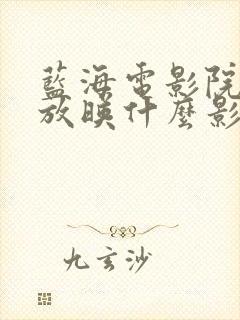 藍海電影院
放映什麼影
九玄沙